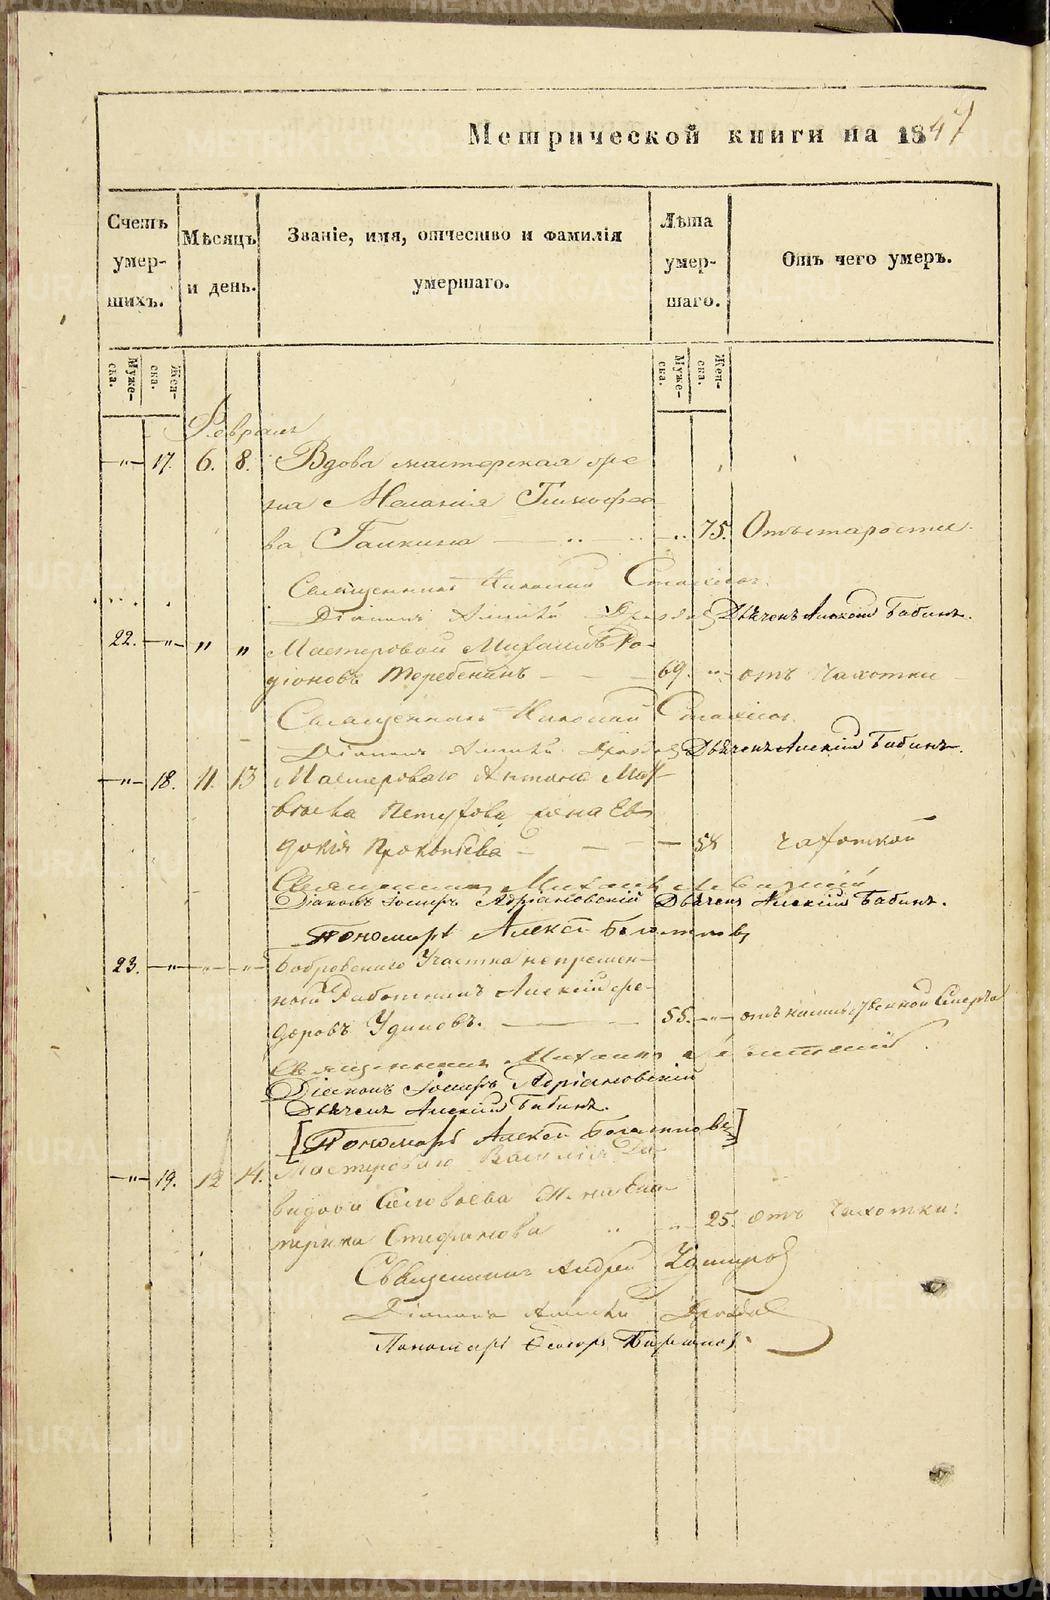 Метрической книги на 1847
Счетъ умер-шихъ.
Мѣсяцъ и день.
Званіе, имя, отчество и фамилія умершаго.
Лѣта умер-шаго.
Отъ чего умеръ.
Муже-ска.
Жен-ска.
Муже-ска.
Жен-ска.
Февраль
-"- 17. 6. 8. Вдова мастерская же-
на Меланія Тимофее-
ва Галкина 75. Отъ старости.
Священникъ Николай
Діаконъ Дьячекъ Алексій Бабинъ.
22. -"- " " Мастеровой Михаилъ Ро-
діоновъ Теребенинъ 69. -"- отъ чахотки
Священникъ Николай
Діаконъ Дьячекъ Алексій Бабинъ.
-"- 18. 11. 13 Мастероваго Антона Мат-
вѣева Петухова жена Ев-
докія Прокопьева 58 чахоткой
Священникъ Михаилъ
Діаконъ Іосифъ Адріановскій Дьячекъ Алексій Бабинъ.
Пономарь Алексѣй
23. -"- -"- -"- Бобровскаго Участка непремен-
ной Работникъ Алексій Фе-
доровъ Удиновъ. 55. -"-
Священникъ Михаилъ
Діаконъ Іосифъ Адріановскій
Дьячекъ Алексій Бабинъ.
[Пономарь Алексѣй
-"- 19. 12 14. Мастероваго Василія Да-
видова Соловьева жена Ека-
терина Стефанова 25. отъ чахотки.
Священникъ Андрей
Діаконъ
Пономарь
METRIKI.GASU-URAL.RU